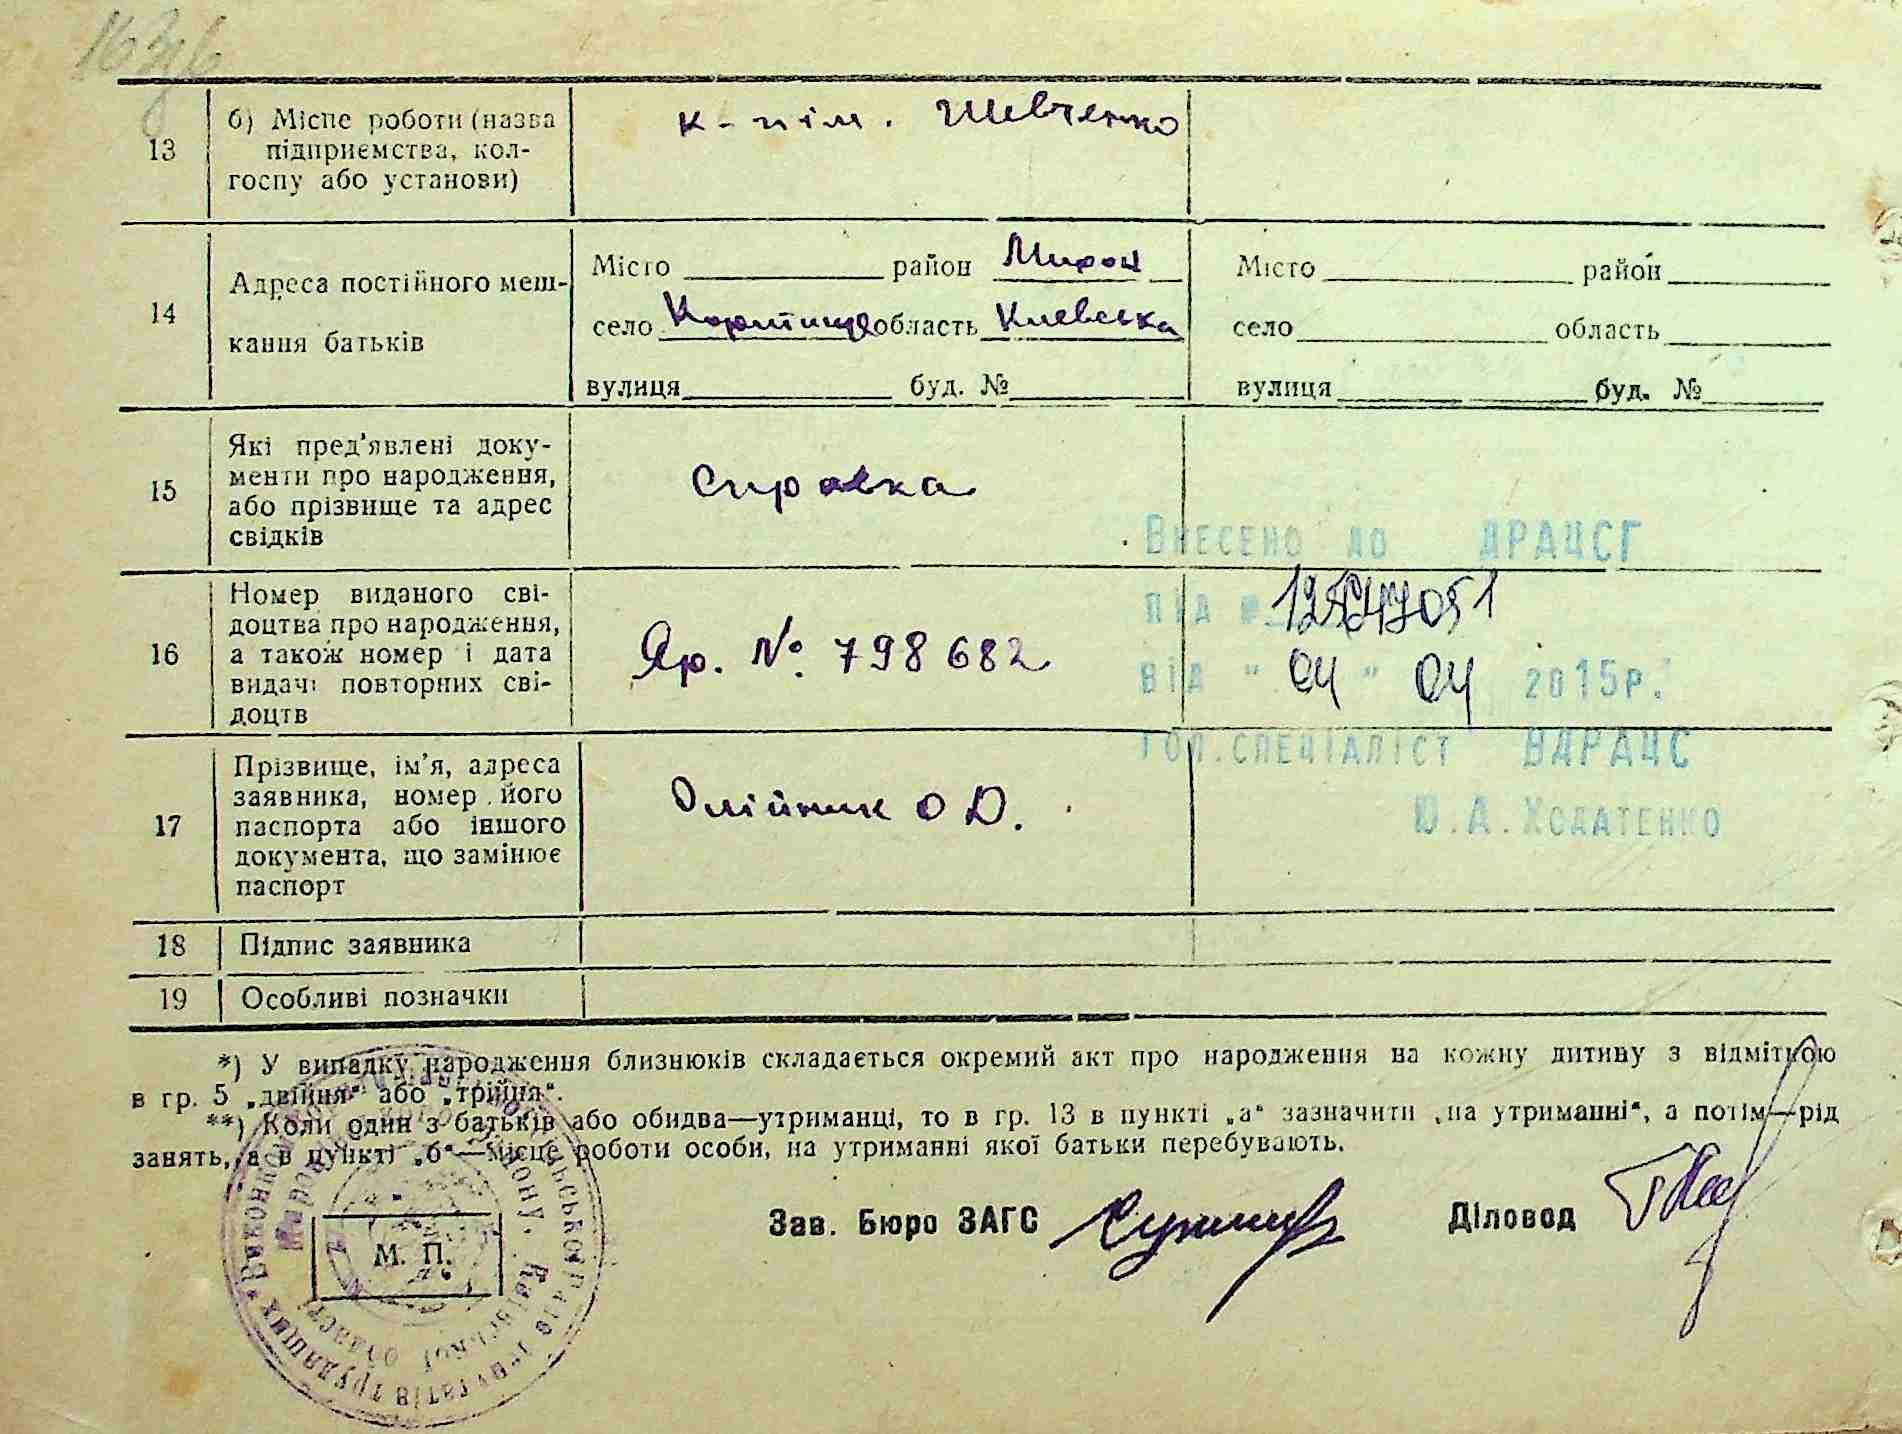 13
б) Місце роботи (назва
підприємства, кол-
госпу або установи)
к-п ім. Шевченко
14
Адреса постійного меш-
кання батьків
Місто район Мирон
село область Киевська
вулиця буд. №
Місто район
село область
вулиця буд. №
15
Які пред'явлені доку-
менти про народження,
або прізвище та адрес
свідків
Справка
16
Номер виданого сві-
доцтва про народження,
а також номер і дата
видачі повторних сві-
доцтв
Яр. № 798682
Внесено до ДРАЦСГ
під №
від " 04 " 04 2015р.
Гол.спеціаліст ВДРАЦС
Ю.А.Ходатенко
17
Прізвище, ім'я, адреса
заявника, номер його
паспорта або іншого
документа, що замінює
паспорт
Олійник О Д.
18
Підпис заявника
19
Особливі позначки
*) У випадку народження близнюків складається окремий акт про народження на кожну дитину з відміткою
в гр. 5 „двійня“ або „трійня“.
**) Коли один з батьків або обидва—утриманці, то в гр. 13 в пункті „а“ зазначити „на утриманні“, а потім—рід
занять, а в пункті „б“—місце роботи особи, на утриманні якої батьки перебувають.
Зав. Бюро ЗАГС
Діловод
М. П.